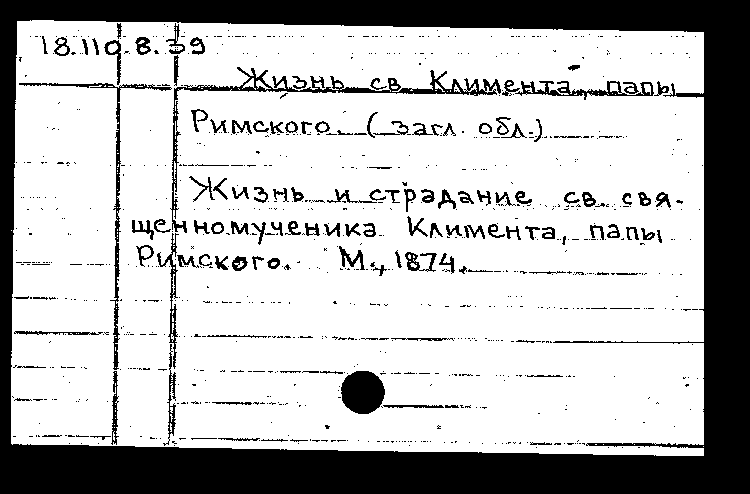 18.110.8.39
Жизнь св. Климента, папы
Римского. (загл. обл.)
Жизнь и страдание св. свя-
щенномученика Климента, папы
Римского. М., 1874.